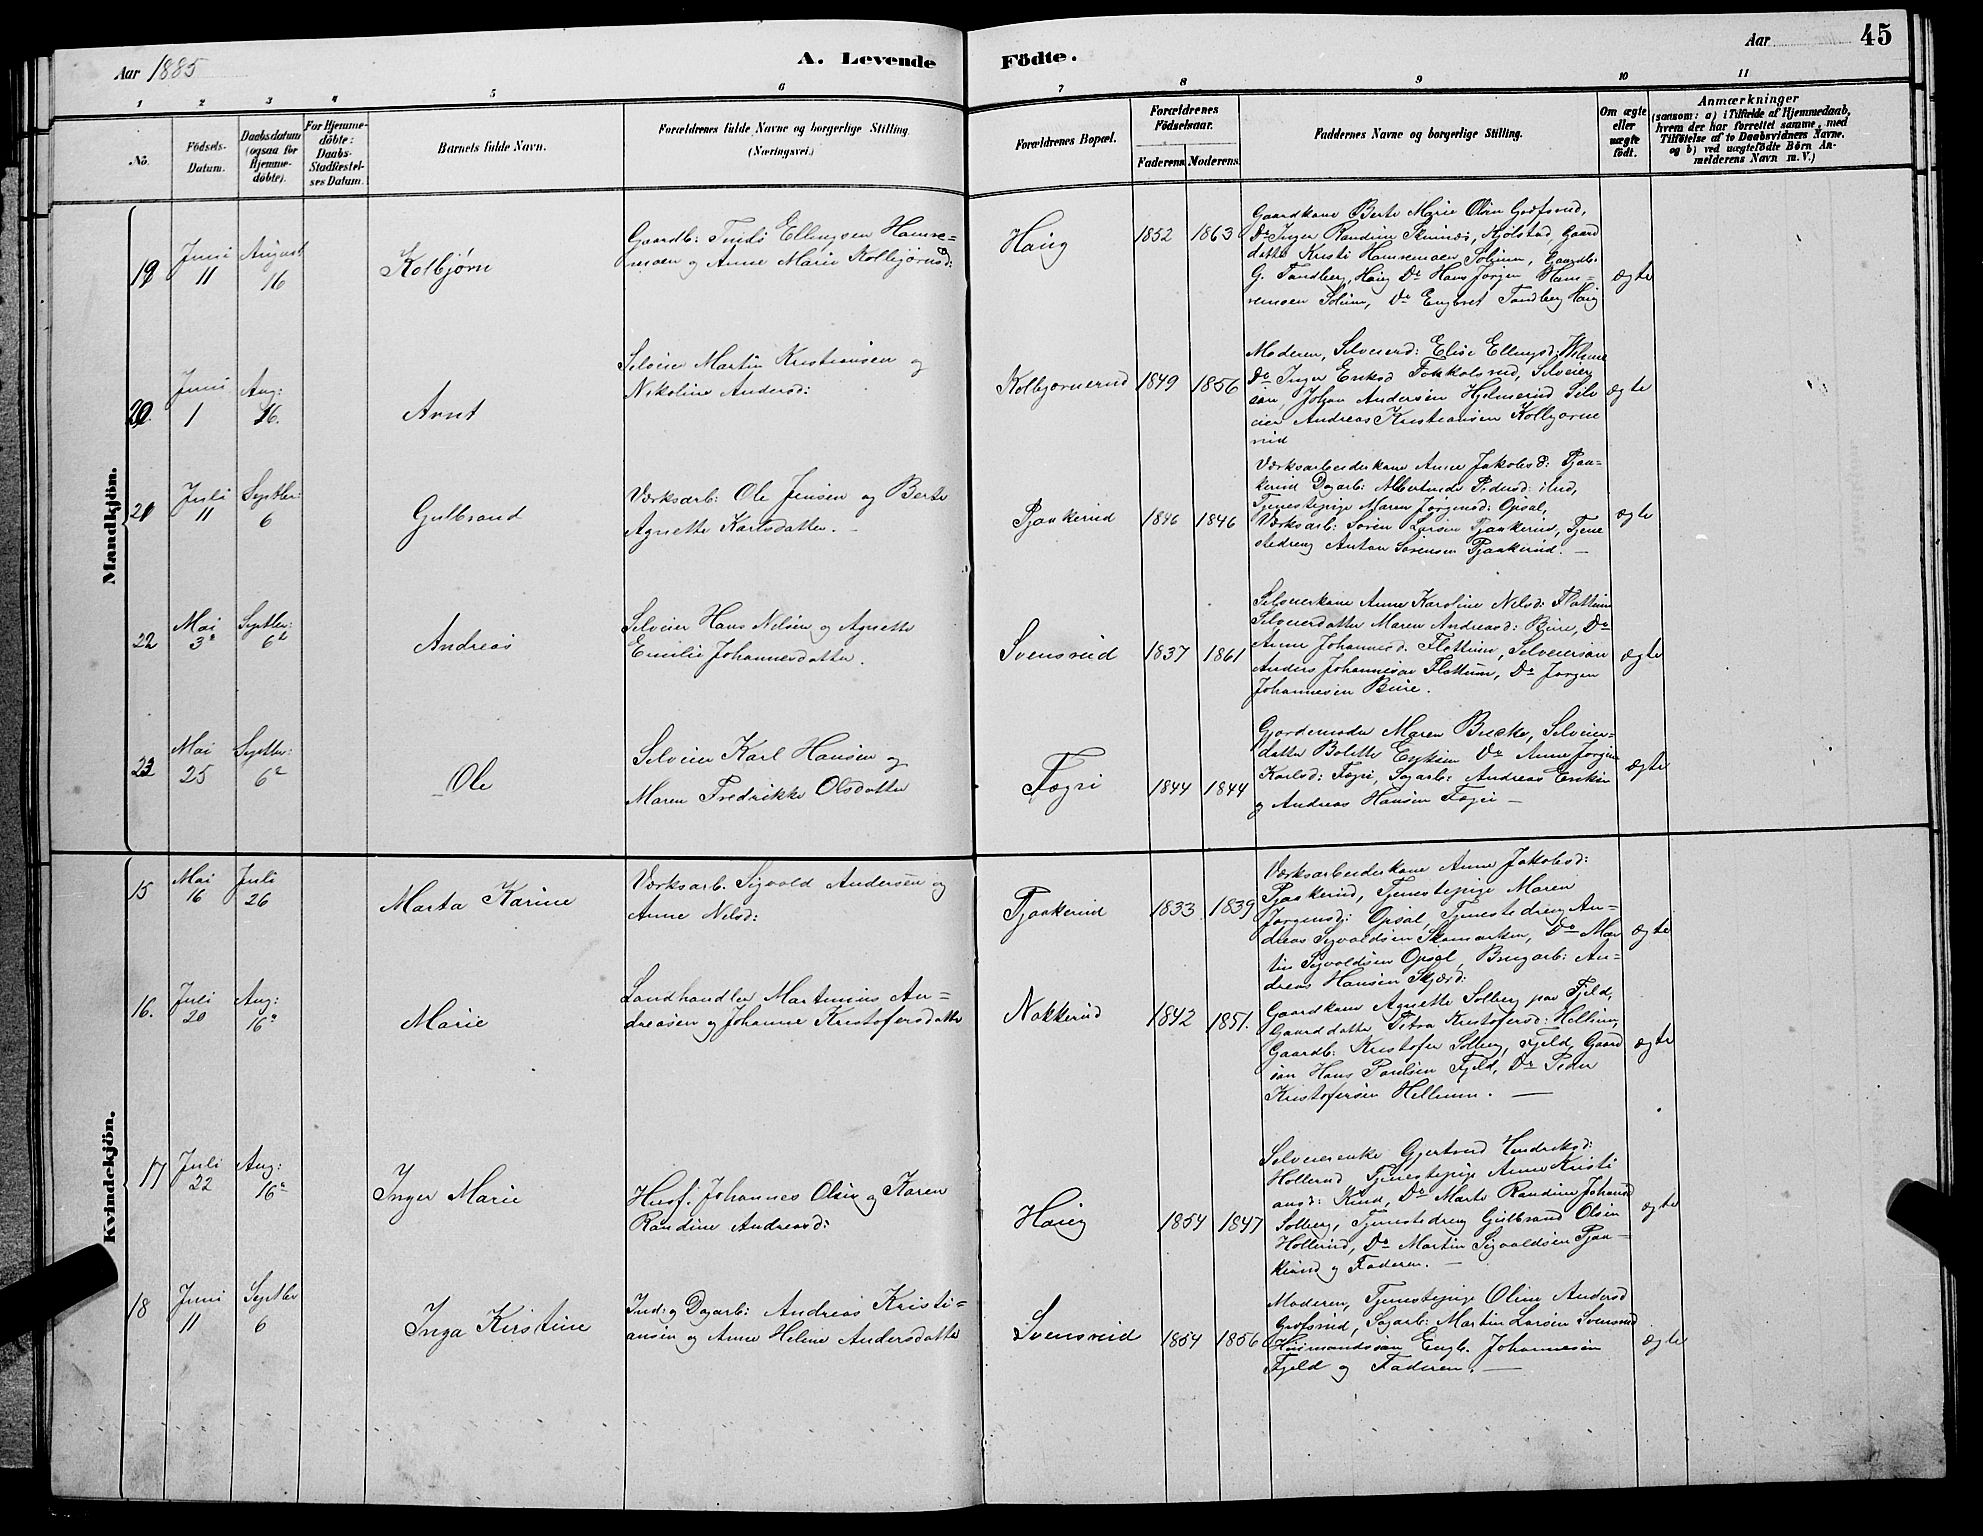 Aar 1885
A. Levende
Födte.
Aar
45
1 2 3 4 5 6 7 8 9 10 11
No.
Födsels-
Datum.
Daabsdatum
(ogsaa for
Hjemme-
döbte).
For Hjemme-
döbte:
Daabs-
Stadfæstel-
ses Datum.
Barnets fulde Navn.
Forældrenes fulde Navne og borgerlige Stilling.
(Næringsvei.)
Forældrenes Bopæl.
Forældrenes
Födselsaar.
Faderens. Moderens.
Faddernes Navne og borgerlige Stilling.
Om ægte
eller
uægte
født.
Anmærkninger
(saasom: a) i Tilfælde af Hjemmedaab,
hvem der har forrettet samme, med
Tilföielse af to Daabsvidners Navne.
og b) ved uægtefödte Börn An-
melderens Navn m. V.)
Mandkjön.
19
Juni
11
August
16
Kolbjørn
Gaardb: Ellingsen Hamre-
moen og Anne Marie Kolbjørnsd:
Haug
1852 1863
Gaardkone Berte Marie Olsen Godfsrud,
Do Inger Randine Skinnes, Kjølstad, Gaard
datter Kristi Hamremoen Solum, Gaardb:
G. Tandberg, Haug Do Hans Jørgen Ham-
remoen Solum, Do Engbret Tandberg Haug
ægte
20
Juni
1
Aug:
16.
Arnt
Selveier Martin Kristiansen og
Nikoline Andersd:
Kolbjørnerud
1849 1856
Moderen, Selveierd: Elise Ellingsd:
Do Inger Eriksd Selveier
søn, Johan Andersen Hjelmerud Selv
eier Andreas Kristiansen Kolbjørne
rud
ægte
21
Juli
11
Septbr:
6
Gulbrand
Værksarb: Ole Jensen og Berte
Agnette Karlsdatter. –
Pjaakerud
1846 1846
Værksarbeiderkone Anne Jakobsd: Pjaa-
kerud Dagarb: Albertine Pedersd:
Tjenestepige Maren Jørgensd: Opsal,
Værksarb: Søren Larsen Pjaakerud, Tjene
stedreng Anton Sørensen Pjaakerud. –
ægte
22
Mai
3
Septbr:
6
Andreas
Selveier Hans Nilsen og Agnette
Emilie Johannesdatter.
Svensrud
1837 1861
Selveierkone Anne Karoline Nilsd: Flattum
Selveierdatter Maren Andreasd: Bure, Do
Anne Johannesd. Flattum, Selveiersøn
Anders Johannesen Flattum, Do Jørgen
Johannesen Bure.
ægte
23
Mai
25
Septbr:
6
Ole
Selveier Karl Hansen og
Maren Fredrikke Olsdatter
Fægri
1844 1844
Gjordemoder Maren Selveier-
datter Bolette Do Anne Jørgine
Karlsd: Fægri, Sagarb: Andreas
og Andreas Hansen Fægri –
ægte
Kvindekjön.
15
Mai
16
Juli
26
Marta Karine
Værksarb. Sigvald Andersen og
Anne Nilsd:
Pjaakerud
1833 1839
Værksarbeiderkone Anne Jakobsd:
Pjaakerud, Tjenestepige Maren
Jørgensd: Opsal, Tjenestedreng An-
dreas Sigvaldsen Do Mar
tin Sigvaldsen Opsal, Brugarb: An-
dreas Hansen Skjærd:
ægte
16.
Juli
20
Aug:
16
Marie
Landhandler Martinius An-
dreasen og Johanne Kristofersdatter
Nakkerud
1842 1851.
Gaardkone Agnette Solberg paa Fjeld,
Gaarddatter Petra Kristofersd: Hellum,
Gaardb: Kristofer Solberg, Fjeld, Gaard
søn Hans Paulsen Fjeld, Do Peder
Kristofersen Hellum. –
ægte
17
Juli
22
Aug:
16
Inger Marie
Husf. Johannes Olsen og Karen
Randine Andreasd:
Haug
1854 1847
Selveierenke Gjertrud Hendriksd:
Hollerud Tjenestepige Anne Kristi
ansd: Do Marte Randine Johansd
Solberg, Tjenestedreng Gulbrand Olsen
Hollerud, Do Martin Sigvaldsen Pjaa-
kerud og Faderen. –
ægte
18
Juni
11
Septbr
6
Inga Kirstine
Ind: og Dagarb: Andreas Kristi-
ansen og Anne Helene Andersdatter
Svensrud
1854 1856
Moderen, Tjenestepige Oline Andersd
Godfsrud, Sagarb: Martin Larsen Svensrud
Husmandssøn Engb. Johannesen
Fjeld og Faderen. –
ægte